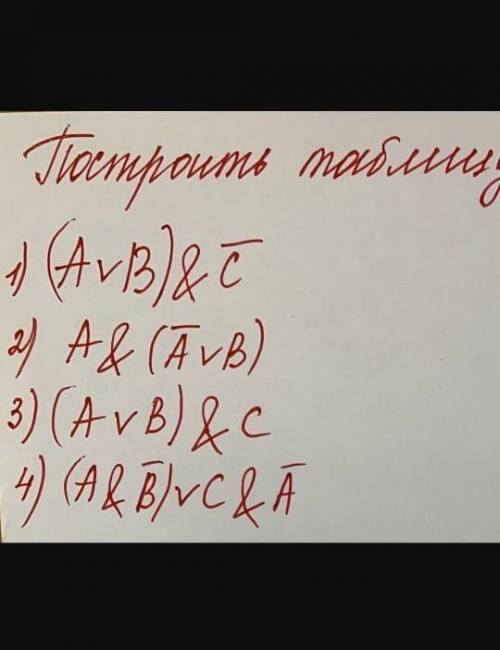 Построить таблицу
1) (A v B) & C̅
2) A & (A̅ v B)
3) (A v B) & C
4) (A & B̅) v C & A̅